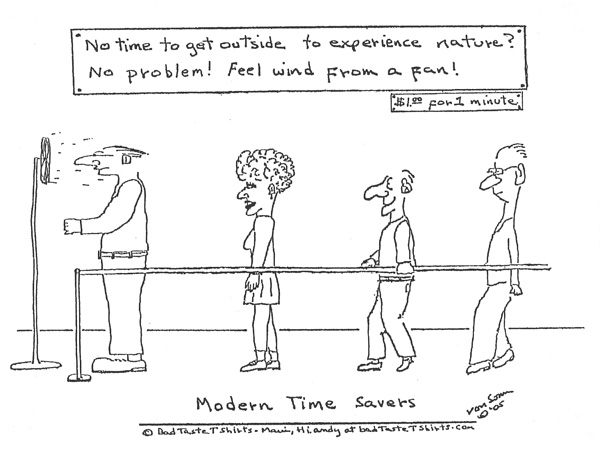 No time to get outside to experience nature?
No problem! Feel wind from a fan!
$1.00 for 1 minute
Modern Time Savers
von Sonn
© '05
© BadTasteTShirts - Maui, Hi. andy at badTasteTShirts.com